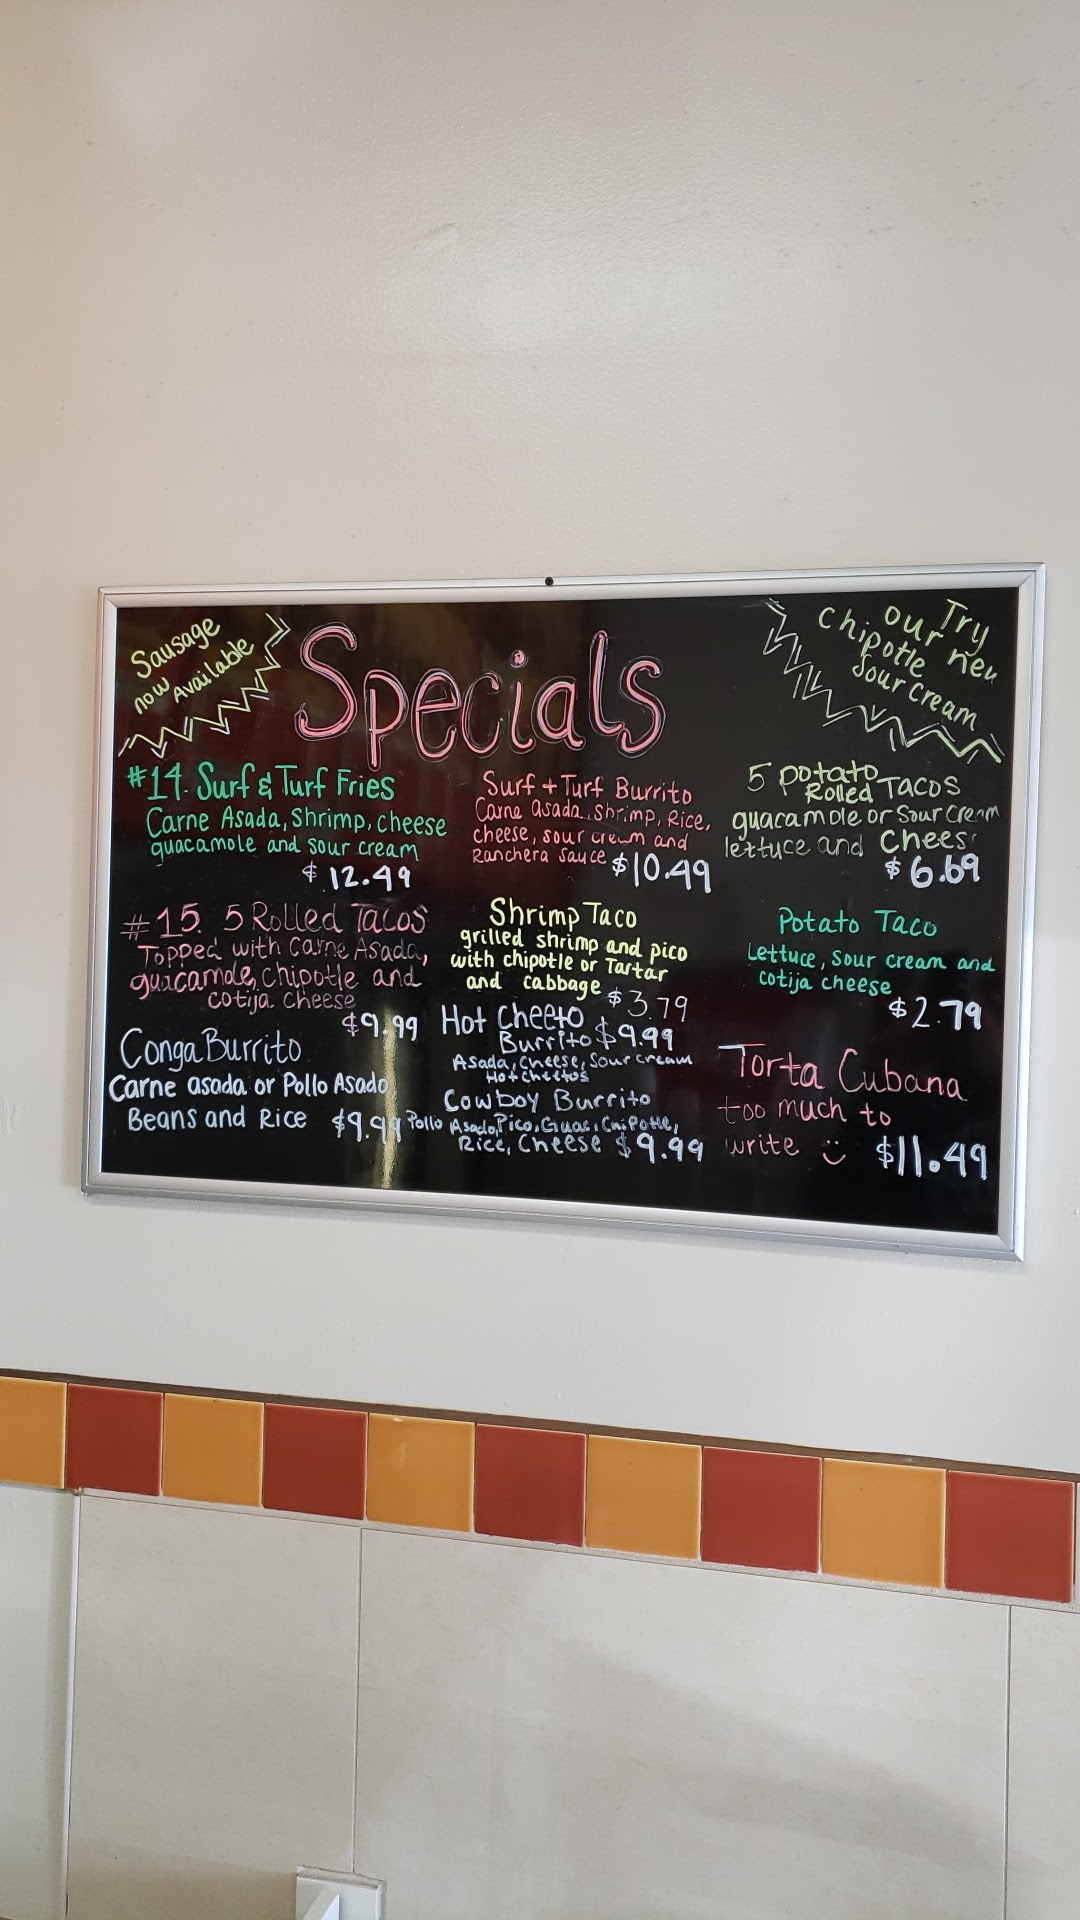 Sausage
now Available
Specials
Try
our new
Chipotle
Sour cream
#14. Surf & Turf Fries
Carne Asada, Shrimp, cheese
guacamole and sour cream
$ 12.49
# 15. 5 Rolled Tacos
Topped with Carne Asada,
guacamole, Chipotle and
cotija cheese
$9.99
Conga Burrito
Carne asada or Pollo Asado
Beans and Rice $9.99
Surf + Turf Burrito
Carne asada, Shrimp, Rice,
cheese, sour cream and
Ranchera Sauce $10.49
Shrimp Taco
grilled shrimp and pico
with chipotle or Tartar
and cabbage
$3.79
Hot Cheeto
Burrito $9.99
Asada, Cheese, Sour cream
Hot cheetos
Cowboy Burrito
Pollo Asado, Pico, Guac, Chipotle,
Rice, Cheese $9.99
5 potato
Rolled TACOS
guacamole or Sour Cream
lettuce and Chees
$6.69
Potato Taco
Lettuce, Sour cream and
cotija cheese
$2.79
Torta Cubana
too much to
write $11.49